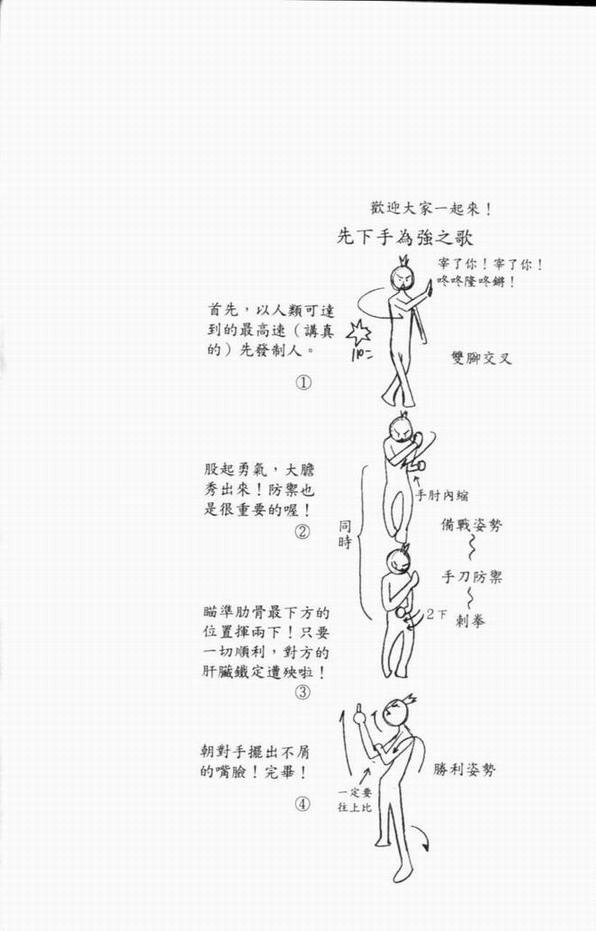 歡迎大家一起來！
先下手為強之歌
宰了你！宰了你！
咚咚隆咚鏘！
首先，以人類可達
到的最高速（講真
的）先發制人。
①
雙腳交叉
股起勇氣，大膽
秀出來！防禦也
是很重要的喔！
②
同時
手肘內縮
備戰姿勢
手刀防禦
刺拳
2下
瞄準肋骨最下方的
位置揮兩下！只要
一切順利，對方的
肝臟鐵定遭殃啦！
③
朝對手擺出不屑
的嘴臉！完畢！
④
一定要
往上比
勝利姿勢